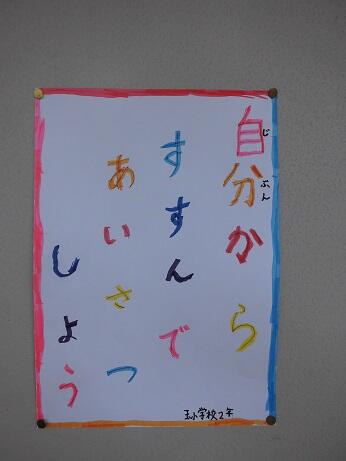 自分から
じぶん
すすんで
あいさつ
しよう
玉小学校2年